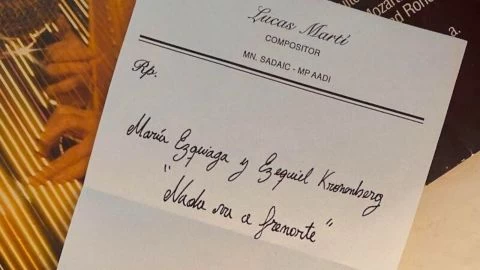 Lucas Marti
COMPOSITOR
MN. SADAIC - MP AADI
Rp.
María Ezquiaga y Ezequiel Kronenberg
"Nada va a frenarte"
Mozart
a.